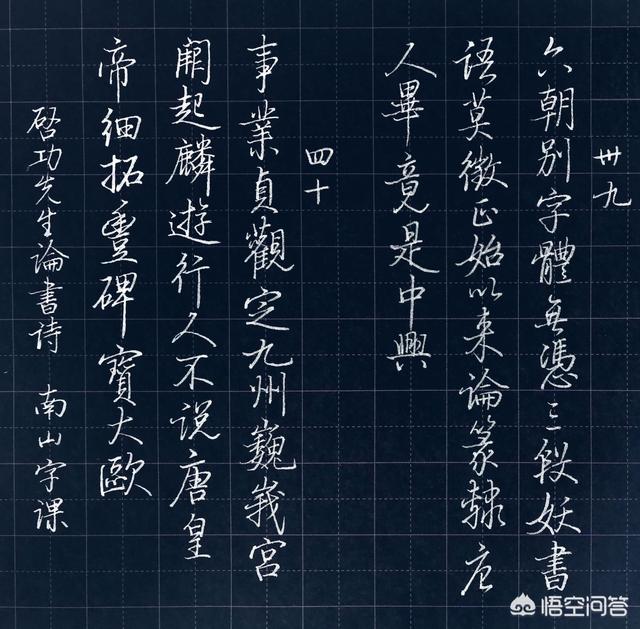 卅九
六朝别字體無憑三段妖書
語莫徵正始以来論篆隸唐
人畢竟是中興
四十
事業貞觀定九州巍峩宫
闕起麟遊行人不説唐皇
帝细拓豐碑寶大歐
啓功先生論書诗 南山字课
悟空问答